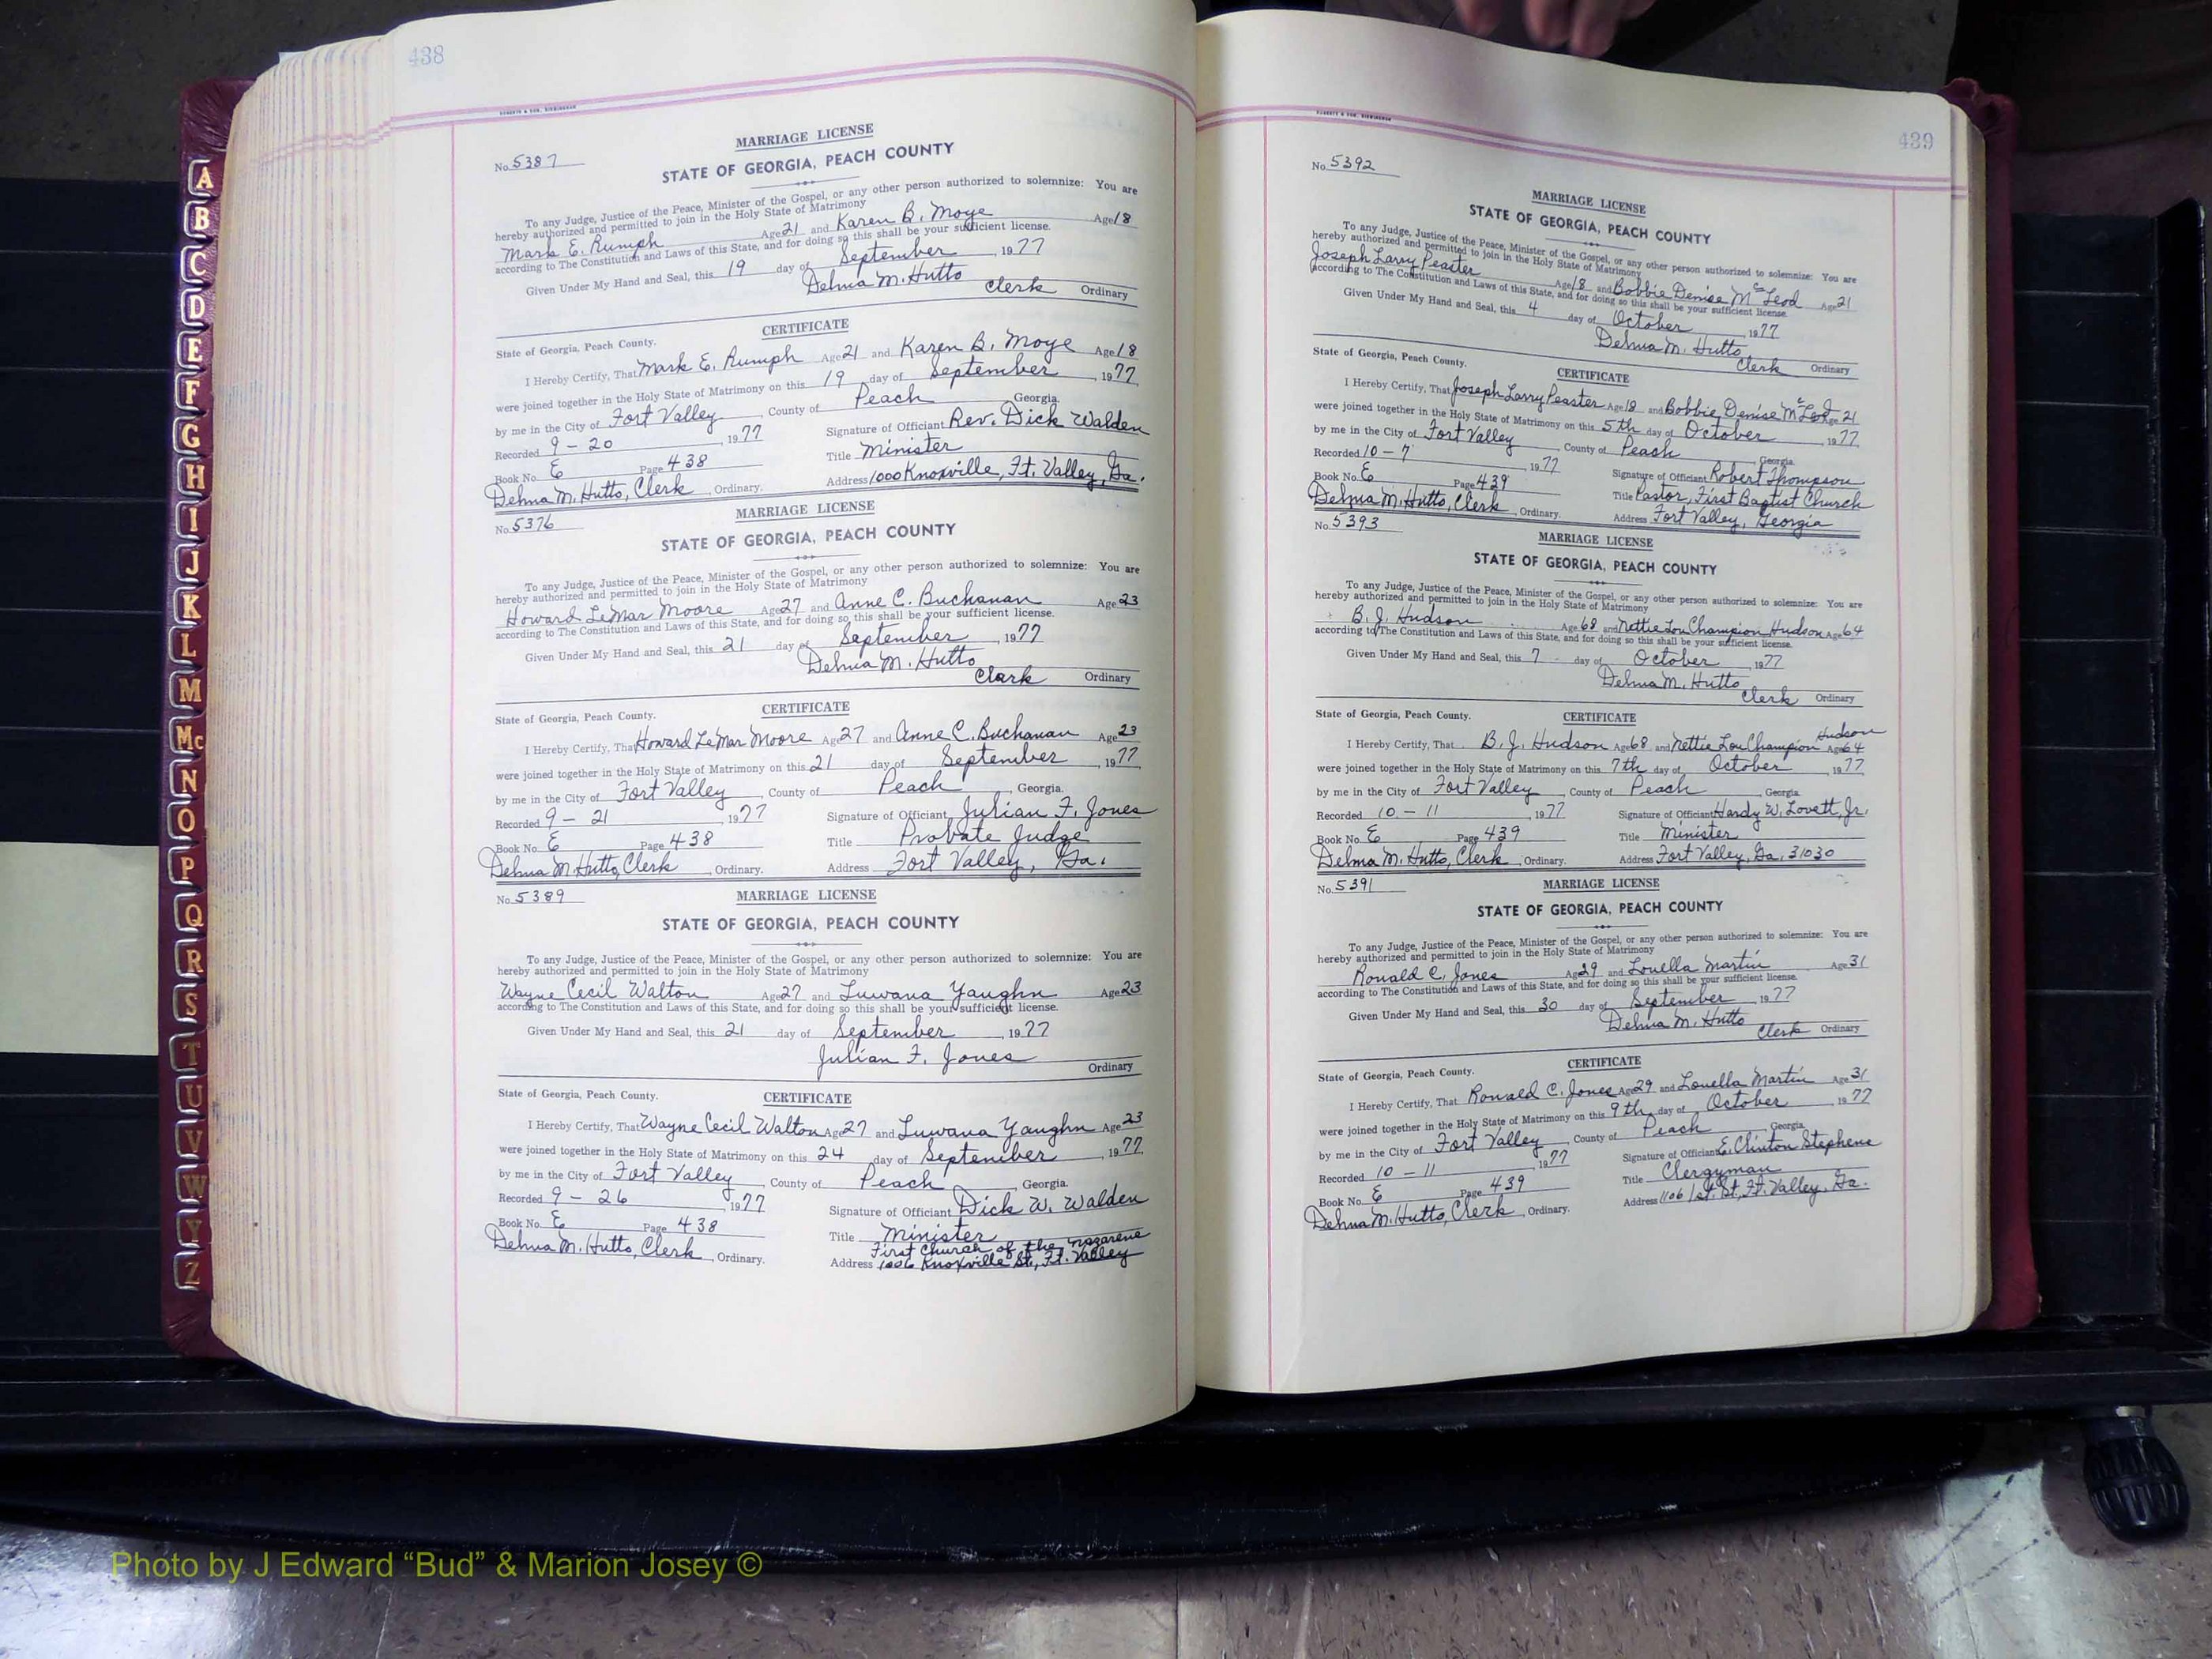 438
ROBERTS & SON, BIRMINGHAM
No. 5387
MARRIAGE LICENSE
STATE OF GEORGIA, PEACH COUNTY
To any Judge, Justice of the Peace, Minister of the Gospel, or any other person authorized to solemnize: You are
hereby authorized and permitted to join in the Holy State of Matrimony
Mark E. Rumph Age 21 and Karen B. Moye Age 18
according to The Constitution and Laws of this State, and for doing so this shall be your sufficient license.
Given Under My Hand and Seal, this 19 day of September, 1977
Delma M. Hutto
Clerk Ordinary
CERTIFICATE
State of Georgia, Peach County.
I Hereby Certify, That Mark E. Rumph Age 21 and Karen B. Moye Age 18
were joined together in the Holy State of Matrimony on this 19 day of September, 1977
by me in the City of Fort Valley, County of Peach Georgia.
Recorded 9-20, 1977 Signature of Officiant Rev. Dick Walden
Book No. E Page 438 Title Minister
Delma M. Hutto, Clerk, Ordinary. Address 1000 Knoxville, Ft. Valley, Ga.
No. 5376
MARRIAGE LICENSE
STATE OF GEORGIA, PEACH COUNTY
To any Judge, Justice of the Peace, Minister of the Gospel, or any other person authorized to solemnize: You are
hereby authorized and permitted to join in the Holy State of Matrimony
Howard LeMar Moore Age 27 and Anne C. Buchanan Age 23
according to The Constitution and Laws of this State, and for doing so this shall be your sufficient license.
Given Under My Hand and Seal, this 21 day of September, 1977
Delma M. Hutto
Clark Ordinary
CERTIFICATE
State of Georgia, Peach County.
I Hereby Certify, That Howard LeMar Moore Age 27 and Anne C. Buchanan Age 23
were joined together in the Holy State of Matrimony on this 21 day of September, 1977
by me in the City of Fort Valley, County of Peach, Georgia.
Recorded 9-21, 1977 Signature of Officiant Julian F. Jones
Book No. E Page 438 Title Probate Judge
Delma M. Hutto, Clerk, Ordinary. Address Fort Valley, Ga.
No. 5389
MARRIAGE LICENSE
STATE OF GEORGIA, PEACH COUNTY
To any Judge, Justice of the Peace, Minister of the Gospel, or any other person authorized to solemnize: You are
hereby authorized and permitted to join in the Holy State of Matrimony
Wayne Cecil Walton Age 27 and Luwana Yaughn Age 23
according to The Constitution and Laws of this State, and for doing so this shall be your sufficient license.
Given Under My Hand and Seal, this 21 day of September, 1977
Julian F. Jones
Ordinary
CERTIFICATE
State of Georgia, Peach County.
I Hereby Certify, That Wayne Cecil Walton Age 27 and Luwana Yaughn Age 23
were joined together in the Holy State of Matrimony on this 24 day of September, 1977
by me in the City of Fort Valley, County of Peach, Georgia.
Recorded 9-26, 1977 Signature of Officiant Dick W. Walden
Book No. E Page 438 Title Minister
First Church of the Nazarene
Delma M. Hutto, Clerk, Ordinary. Address 1006 Knoxville St., Ft. Valley
439
ROBERTS & SON, BIRMINGHAM
No. 5392
MARRIAGE LICENSE
STATE OF GEORGIA, PEACH COUNTY
To any Judge, Justice of the Peace, Minister of the Gospel, or any other person authorized to solemnize: You are
hereby authorized and permitted to join in the Holy State of Matrimony
Joseph Larry Peaster Age 18 and Bobbie Denise McLeod Age 21
according to The Constitution and Laws of this State, and for doing so this shall be your sufficient license.
Given Under My Hand and Seal, this 4 day of October, 1977
Delma M. Hutto
Clerk Ordinary
State of Georgia, Peach County.
CERTIFICATE
I Hereby Certify, That Joseph Larry Peaster Age 18 and Bobbie Denise McLeod Age 21
were joined together in the Holy State of Matrimony on this 5th day of October, 1977
by me in the City of Fort Valley, County of Peach, Georgia.
Recorded 10-7, 1977 Signature of Officiant Robert Thompson
Book No. E Page 439 Title Pastor, First Baptist Church
Delma M. Hutto, Clerk, Ordinary. Address Fort Valley, Georgia
No. 5393
MARRIAGE LICENSE
STATE OF GEORGIA, PEACH COUNTY
To any Judge, Justice of the Peace, Minister of the Gospel, or any other person authorized to solemnize: You are
hereby authorized and permitted to join in the Holy State of Matrimony
B. J. Hudson Age 68 and Nettie Lou Champion Hudson Age 64
according to The Constitution and Laws of this State, and for doing so this shall be your sufficient license.
Given Under My Hand and Seal, this 7 day of October, 1977
Delma M. Hutto
Clerk Ordinary
State of Georgia, Peach County.
CERTIFICATE
Hudson
I Hereby Certify, That B. J. Hudson Age 68 and Nettie Lou Champion Age 64
were joined together in the Holy State of Matrimony on this 7th day of October, 1977
by me in the City of Fort Valley, County of Peach, Georgia
Recorded 10-11, 1977 Signature of Officiant Hardy W. Lovett, Jr.
Book No. E Page 439 Title Minister
Delma M. Hutto, Clerk, Ordinary. Address Fort Valley, Ga, 31030
No. 5391
MARRIAGE LICENSE
STATE OF GEORGIA, PEACH COUNTY
To any Judge, Justice of the Peace, Minister of the Gospel, or any other person authorized to solemnize: You are
hereby authorized and permitted to join in the Holy State of Matrimony
Ronald C. Jones Age 29 and Louella Martin Age 31
according to The Constitution and Laws of this State, and for doing so this shall be your sufficient license.
Given Under My Hand and Seal, this 30 day of September, 1977
Delma M. Hutto
Clerk Ordinary
State of Georgia, Peach County.
CERTIFICATE
I Hereby Certify, That Ronald C. Jones Age 29 and Louella Martin Age 31
were joined together in the Holy State of Matrimony on this 9th day of October 1977
by me in the City of Fort Valley, County of Peach, Georgia
Recorded 10-11 1977 Signature of Officiant E. Clinton Stephens
Book No. E Page 439 Title Clergyman
Delma M. Hutto, Clerk, Ordinary. Address 1106 1st. St, Ft. Valley, Ga.
A
B
C
D
E
F
G
H
I
J
K
L
M
Mc
N
O
P
Q
R
S
T
U
V
W
Y
Z
Photo by J Edward “Bud” & Marion Josey ©